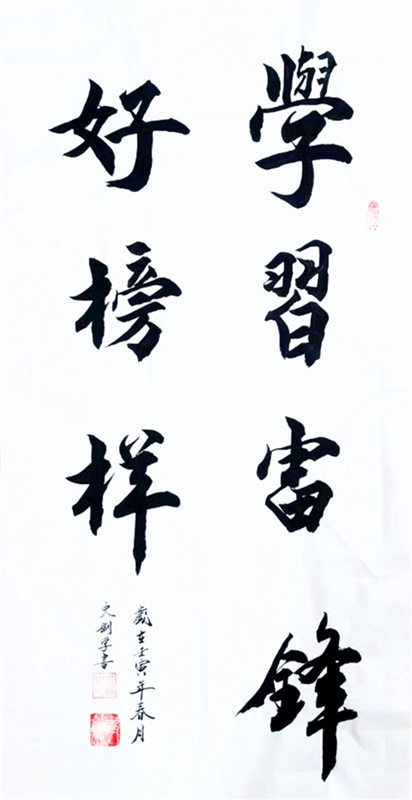 學習雷鋒
好榜样
歲在壬寅年春月
史剑学書